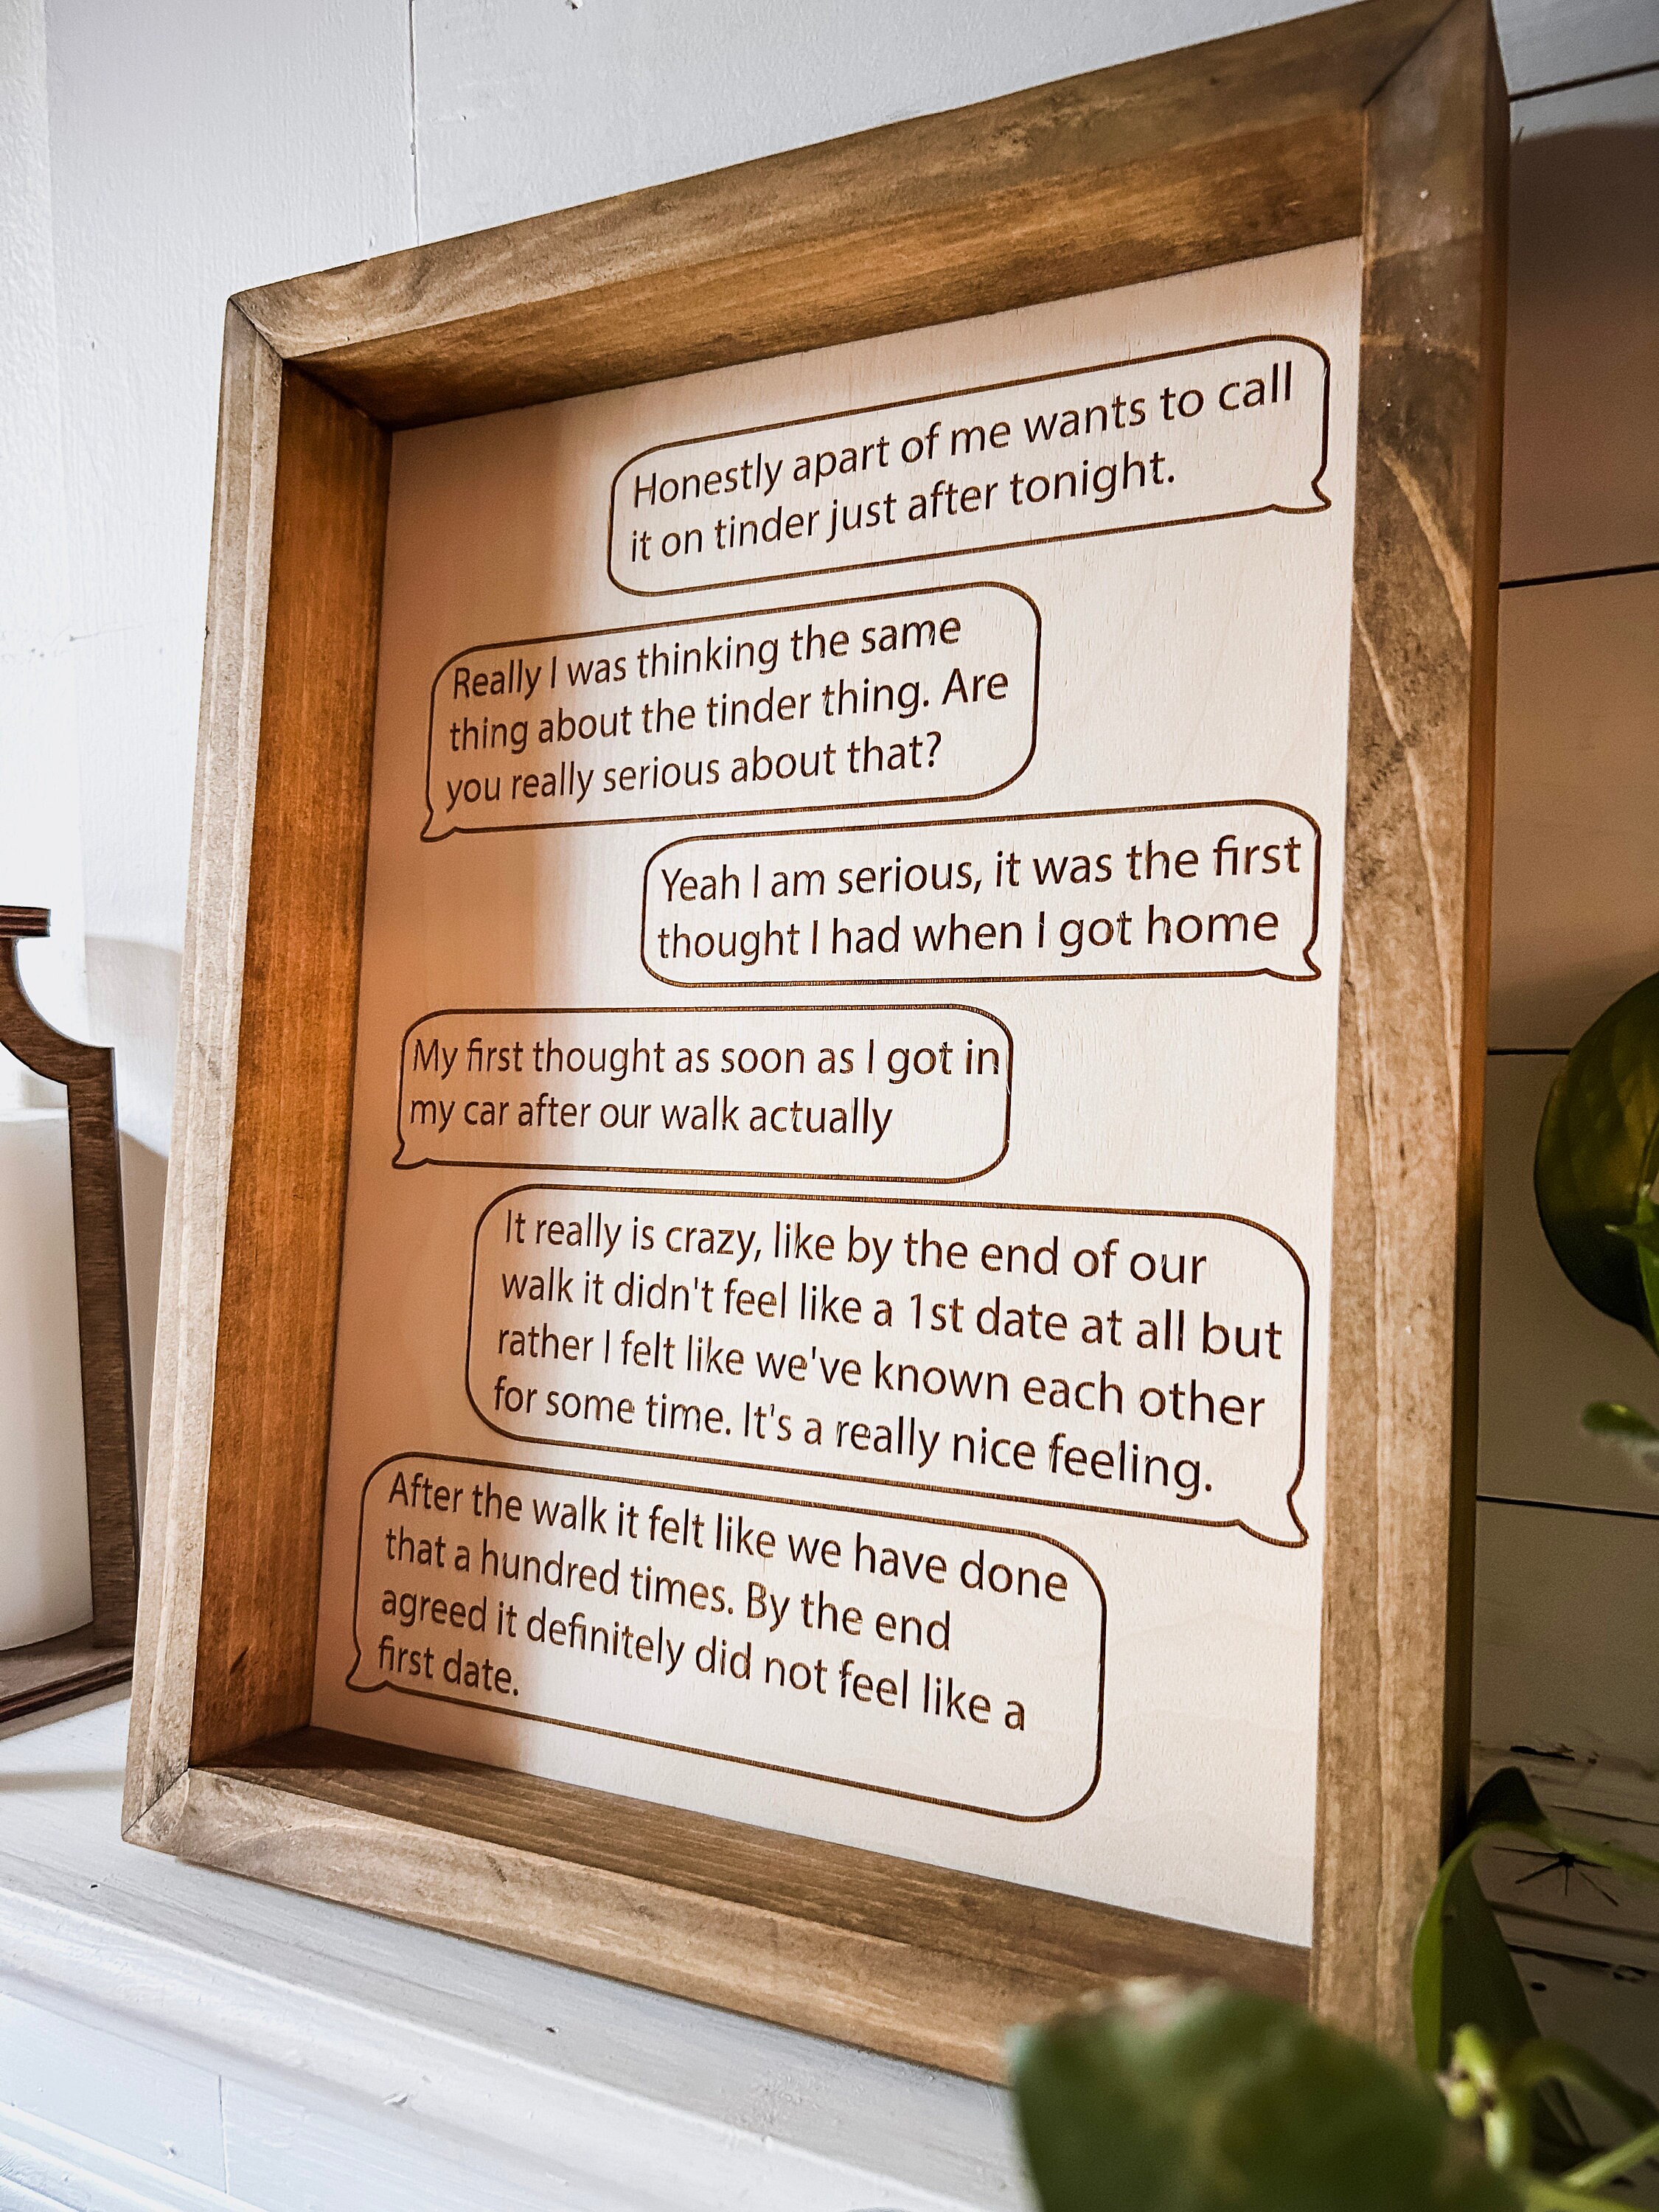 Honestly apart of me wants to call
it on tinder just after tonight.
Really I was thinking the same
thing about the tinder thing. Are
you really serious about that?
Yeah I am serious, it was the first
thought I had when I got home
My first thought as soon as I got in
my car after our walk actually
It really is crazy, like by the end of our
walk it didn't feel like a 1st date at all but
rather I felt like we've known each other
for some time. It's a really nice feeling.
After the walk it felt like we have done
that a hundred times. By the end
agreed it definitely did not feel like a
first date.